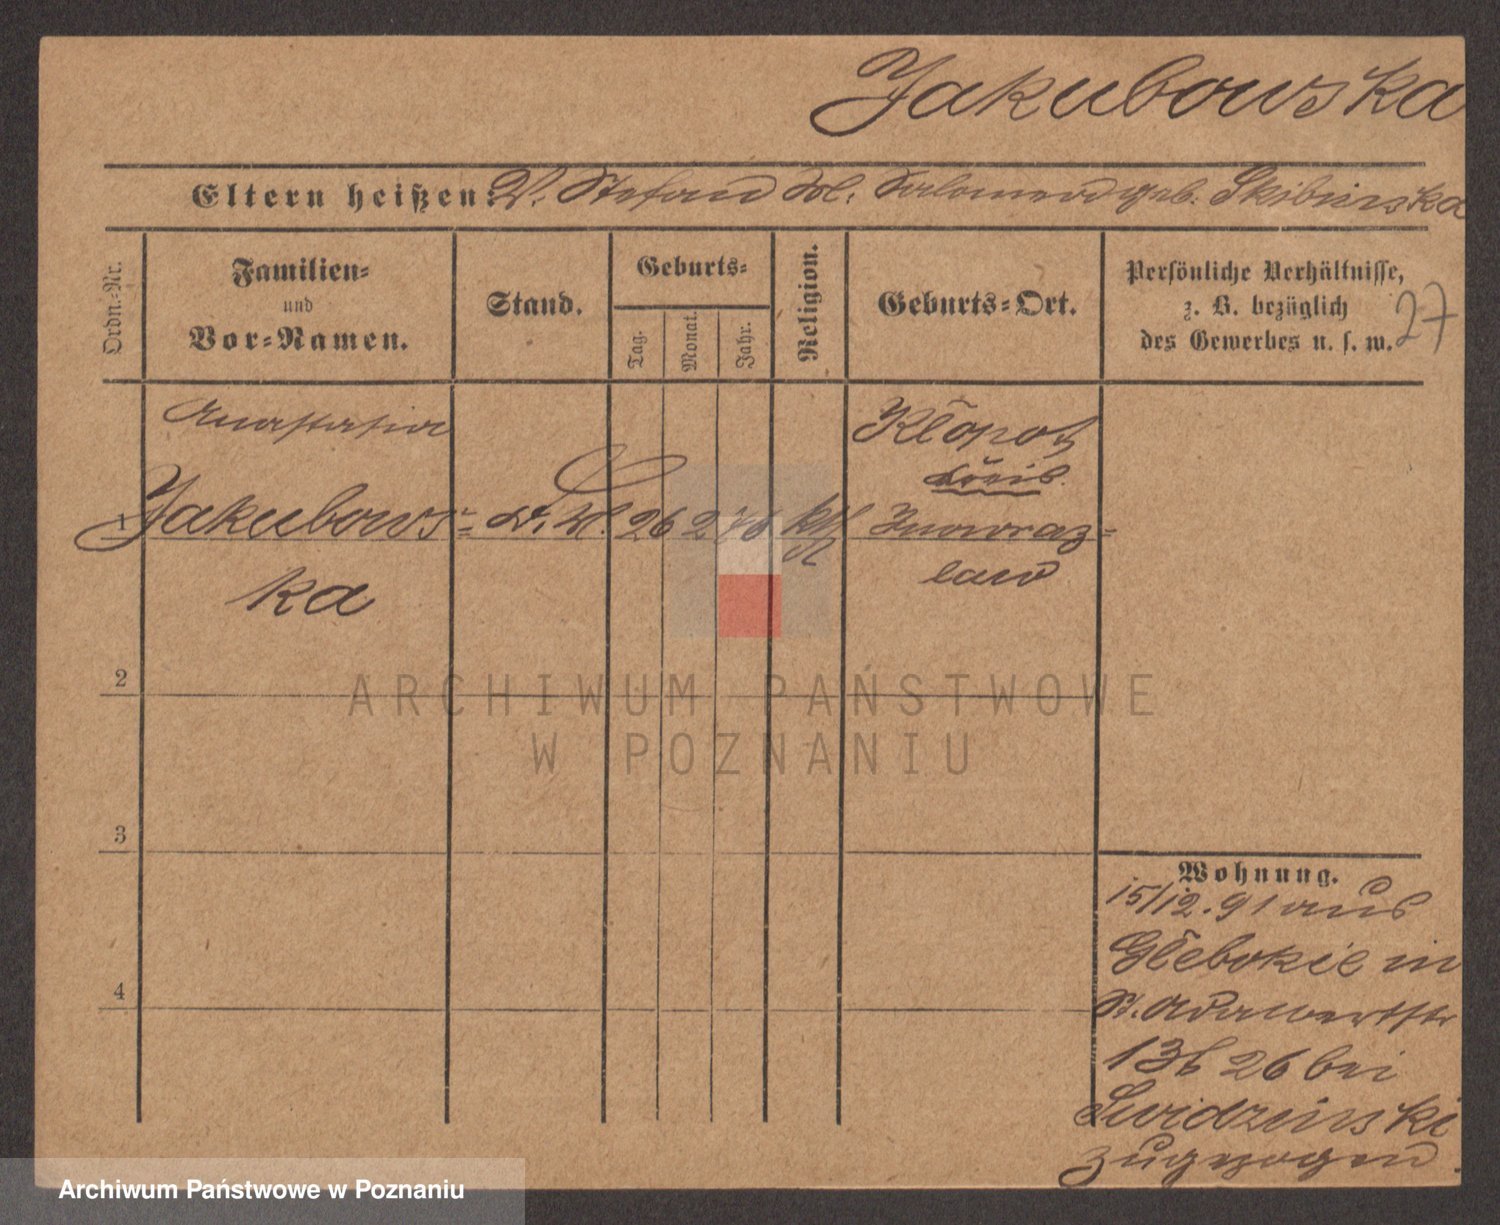 Jakubowska
Eltern heißen: V. Stefan geb. Skibinska
Ordn.-Nr.
Familien-
und
Vor-Namen.
Stand.
Geburts-
Tag.
Monat.
Jahr.
Religion.
Geburts-Ort.
Persönliche Verhältnisse,
z. B. bezüglich
des Gewerbes u. s. w.
27
Anastasia
1 Jakubows-
ka
26 2 kth
Kłopot
Kreis
Inowraz-
law
2
3
4
Wohnung.
15/12. 91 aus
Głebokie in
St. Adalbertstr
13b 26 bei
Swidzinski
zugezogen
ARCHIWUM PAŃSTWOWE
W POZNANIU
Archiwum Państwowe w Poznaniu